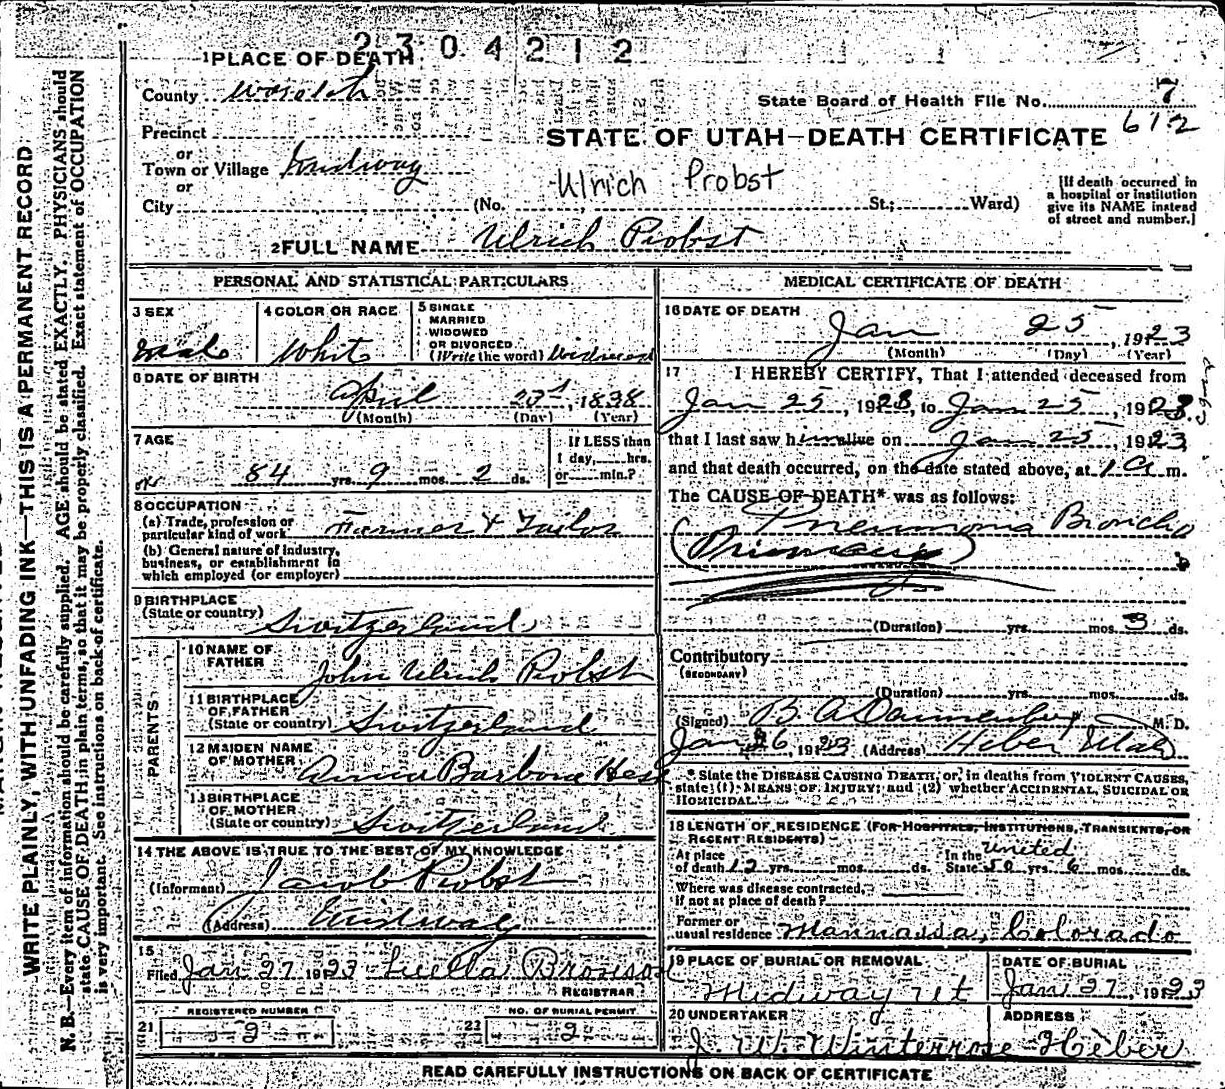 2304212
1 PLACE OF DEATH
County Wasatch
State Board of Health File No. 7
612
STATE OF UTAH—DEATH CERTIFICATE
Precinct
or
Town or Village Midway
or
City (No. St.; Ward)
Ulrich Probst
[If death occurred in
a hospital or institution
give its NAME instead
of street and number.]
2 FULL NAME Ulrich Probst
WRITE PLAINLY, WITH UNFADING INK—THIS IS A PERMANENT RECORD
N. B.—Every item of information should be carefully supplied. AGE should be stated EXACTLY. PHYSICIANS should
state CAUSE OF DEATH in plain terms, so that it may be properly classified. Exact statement of OCCUPATION
is very important. See instructions on back of certificate.
PERSONAL AND STATISTICAL PARTICULARS
3 SEX
Male
4 COLOR OR RACE
White
5 SINGLE
MARRIED
WIDOWED
OR DIVORCED
(Write the word) Widowed
6 DATE OF BIRTH
April 23, 1838
(Month) (Day) (Year)
7 AGE
84 yrs. 9 mos. 2 ds.
If LESS than
1 day, hrs.
or min.?
8 OCCUPATION
(a) Trade, profession or
particular kind of work Farmer & Tailor
(b) General nature of industry,
business, or establishment in
which employed (or employer)
9 BIRTHPLACE
(State or country) Switzerland
PARENTS
10 NAME OF
FATHER John Ulrich Probst
11 BIRTHPLACE
OF FATHER
(State or country) Switzerland
12 MAIDEN NAME
OF MOTHER Anna Barbara Hess
13 BIRTHPLACE
OF MOTHER
(State or country) Switzerland
14 THE ABOVE IS TRUE TO THE BEST OF MY KNOWLEDGE
(Informant) Jacob Probst
(Address) Midway
15
Filed Jan 27 1923 Luella Bronson
REGISTRAR
21 REGISTERED NUMBER
2
22 NO. OF BURIAL PERMIT
2
MEDICAL CERTIFICATE OF DEATH
16 DATE OF DEATH
Jan 25, 1923
(Month) (Day) (Year)
17 I HEREBY CERTIFY, That I attended deceased from
Jan 25, 1923, to Jan 25, 1923.
that I last saw him alive on Jan 25, 1923
and that death occurred, on the date stated above, at 1 a m.
The CAUSE OF DEATH* was as follows:
Pneumonia Broncho
(Primary)
(Duration) yrs. mos. 3 ds.
Contributory
(SECONDARY)
(Duration) yrs. mos. ds.
(Signed) B A Dannenberg M. D.
Jan 26, 1923 (Address) Heber Utah
* State the DISEASE CAUSING DEATH, or, in deaths from VIOLENT CAUSES,
state (1) MEANS OF INJURY; and (2) whether ACCIDENTAL, SUICIDAL OR
HOMICIDAL.
18 LENGTH OF RESIDENCE (FOR HOSPITALS, INSTITUTIONS, TRANSIENTS, OR
RECENT RESIDENTS)
United
At place
of death 12 yrs. mos. ds. In the
State 50 yrs. 6 ds.
Where was disease contracted,
if not at place of death?
Former or
usual residence Mannassa, Colorado
19 PLACE OF BURIAL OR REMOVAL
Midway Ut
DATE OF BURIAL
Jan 27, 1923
20 UNDERTAKER
J. W. Winterrose
ADDRESS
Heber
READ CAREFULLY INSTRUCTIONS ON BACK OF CERTIFICATE